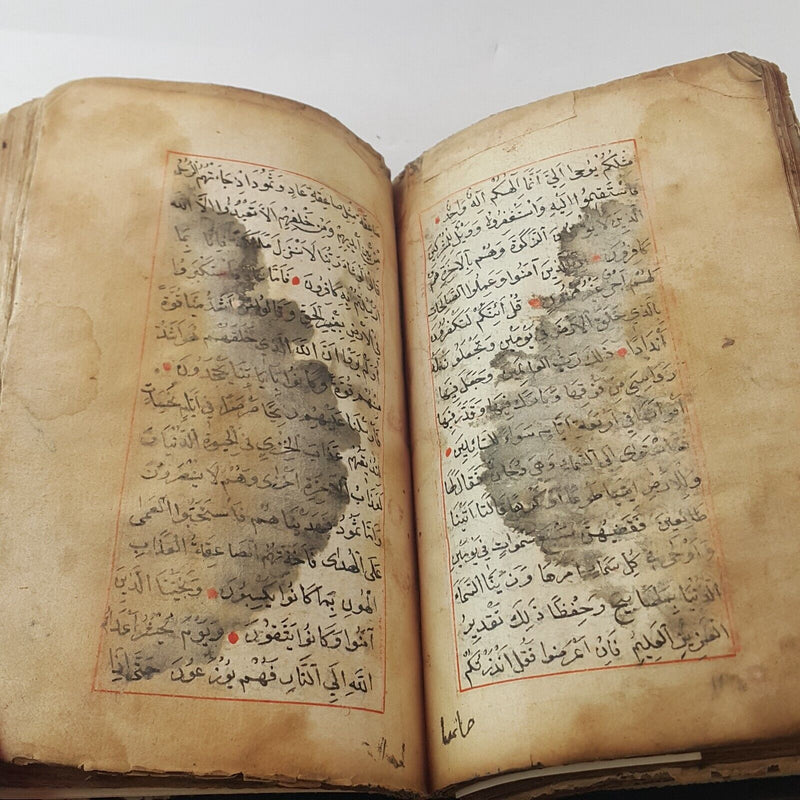 مثلكم يوحى الي انما الهكم اله واحد
فاستقيموا اليه واستغفروه وويل للمشركين
الذين لا الزكوة وهم بالاخرة هم
كافرون الذين آمنوا وعملوا الصالحات
لهم اجر غير ممنون قل ائنكم لتكفرون
بالذي خلق الارض في يومين وتجعلون له
اندادا ذلك رب العالمين وجعل فيها
رواسي من فوقها وبارك فيها وقدر فيها
اقواتها في اربعة ايام سواء للسائلين
ثم استوى الى السماء وهي دخان فقال لها
وللارض ائتيا طوعا او كرها قالتا اتينا
طائعين فقضيهن سبع سموات في يومين
واوحى في كل سماء امرها وزينا السماء
الدنيا بمصابيح وحفظا ذلك تقدير
العزيز العليم فان اعرضوا فقل انذرتكم
صاعقة مثل صاعقة عاد وثمود اذ جاءتهم الرسل
من بين ايديهم ومن خلفهم الا تعبدوا الا الله
قالوا لو شاء ربنا لانزل ملائكة فانا بما
ارسلتم به كافرون فاما فاستكبروا
في الارض بغير الحق وقالوا من اشد منا قوة
اولم يروا ان الله الذي خلقهم هو اشد
منهم قوة وكانوا باياتنا يجحدون
فارسلنا عليهم ريحا صرصرا في ايام نحسات
لنذيقهم عذاب الخزي في الحيوة الدنيا
ولعذاب الاخرة اخزى وهم لا ينصرون
واما ثمود فهديناهم فاستحبوا العمى
على الهدى فاخذتهم صاعقة العذاب
الهون بما كانوا يكسبون ونجينا الذين
آمنوا وكانوا يتقون ويوم يحشر اعداء
الله الى النار فهم يوزعون حتى اذا